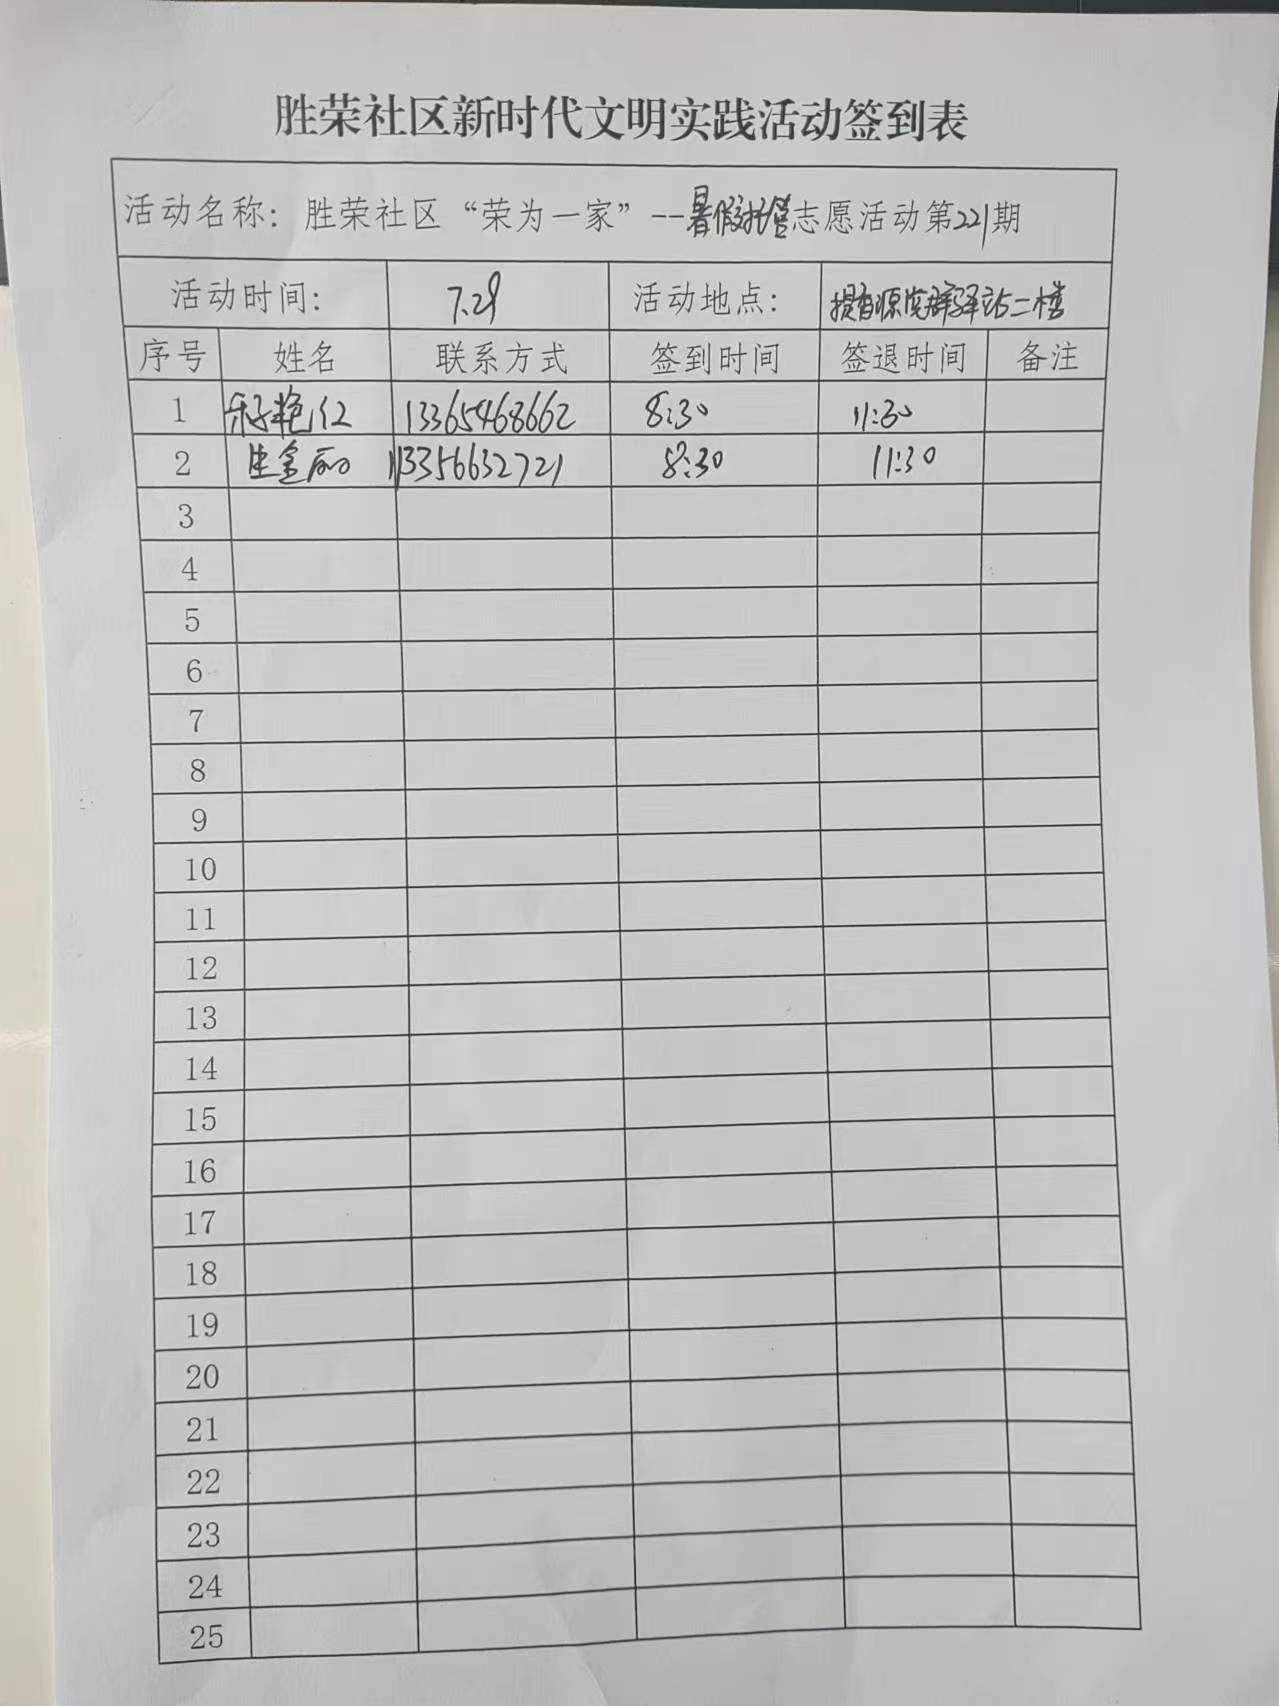 胜荣社区新时代文明实践活动签到表
活动名称：胜荣社区“荣为一家”--暑假托管志愿活动第221期
活动时间： 7.29 活动地点： 提香源党群驿站二楼
序号 姓名 联系方式 签到时间 签退时间 备注
1 艳红 13365468662 8:30 11:30
2 金丽 13356632721 8:30 11:30
3
4
5
6
7
8
9
10
11
12
13
14
15
16
17
18
19
20
21
22
23
24
25